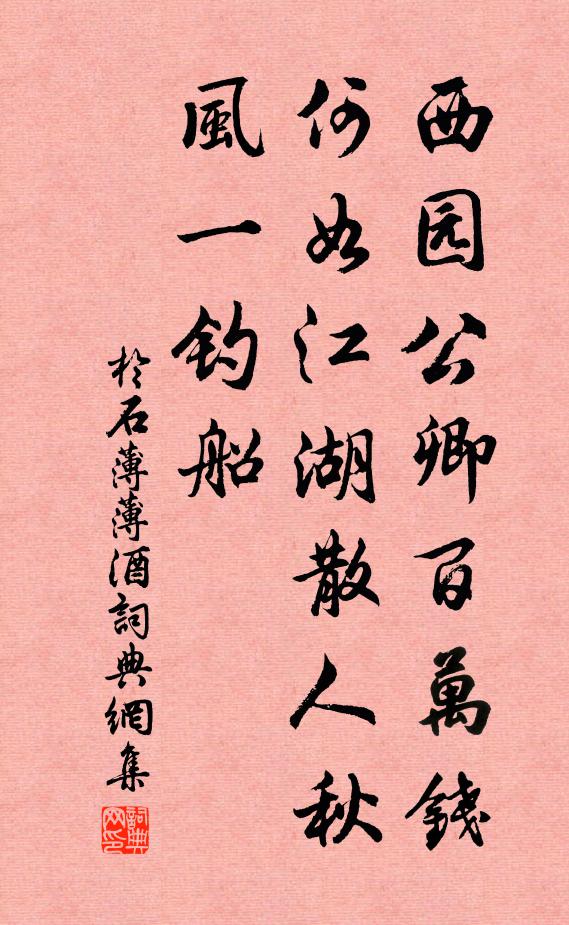 西园公卿百萬錢
何如江湖散人秋
風一釣船
於石薄薄酒詞典網集
詞典
网印